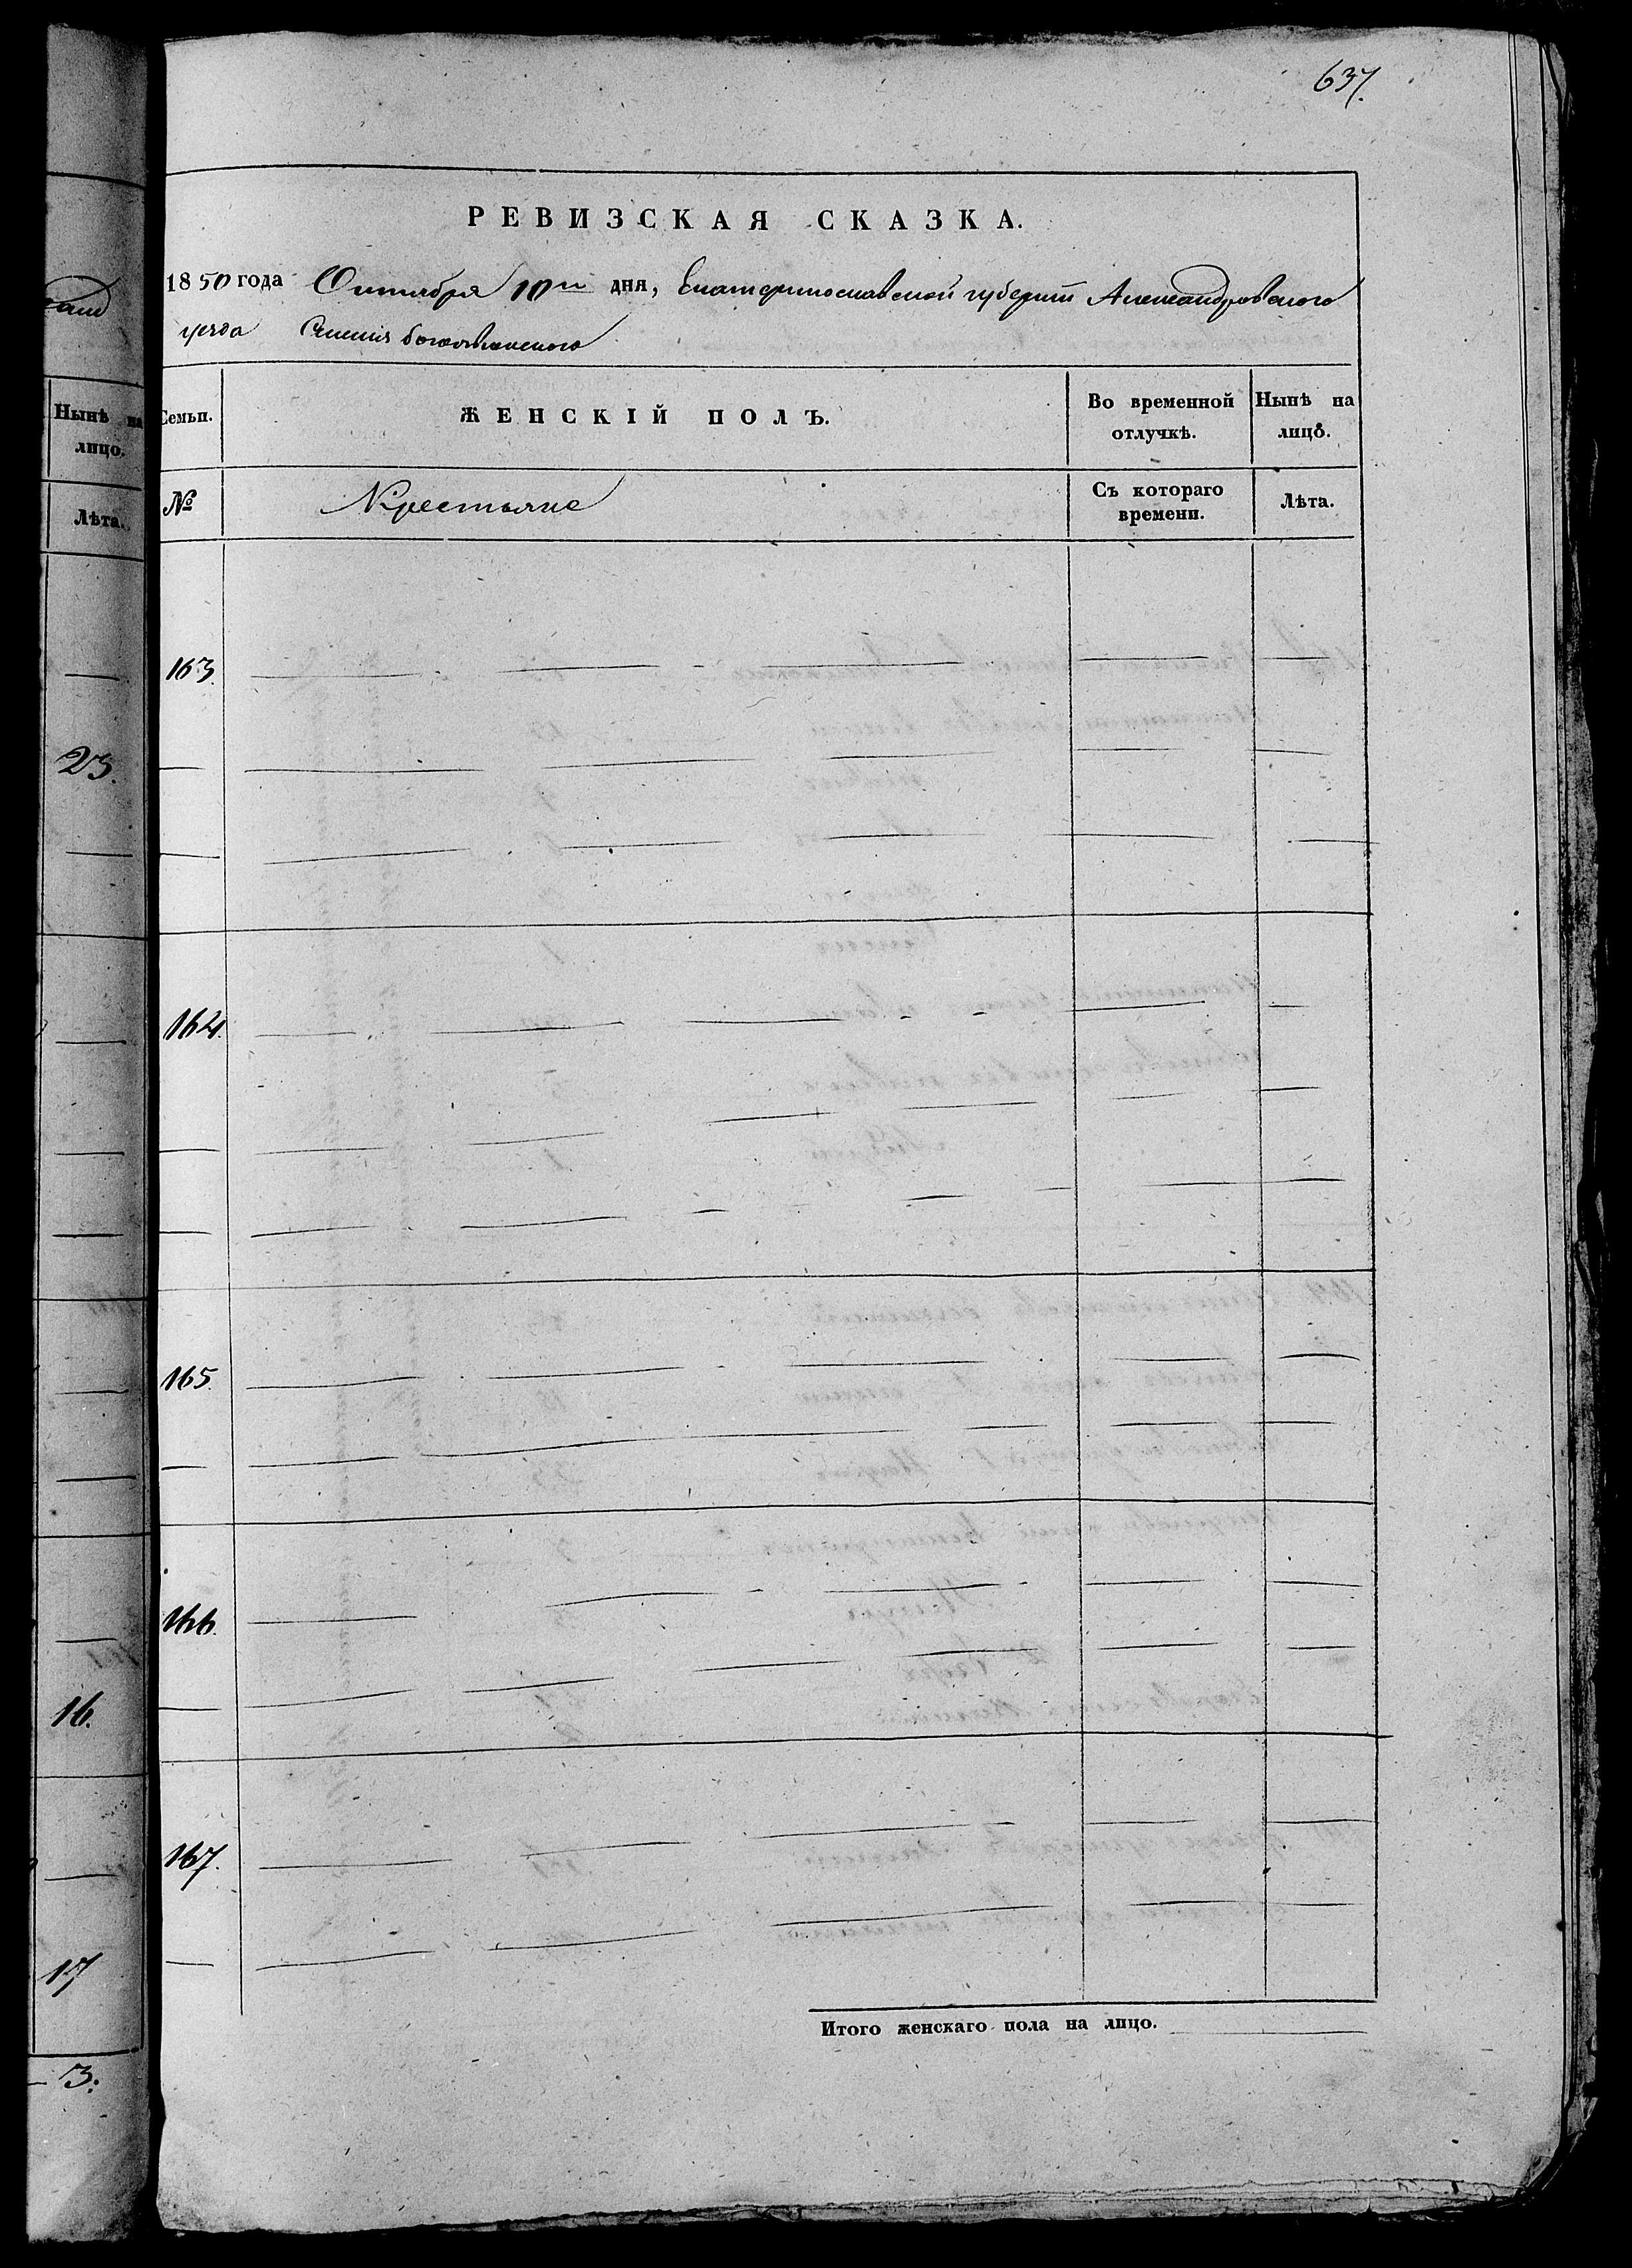 637.
РЕВИЗСКАЯ СКАЗКА.
1850 года Октября 10го дня, Екатеринославской губернии Александровского
уезда Селения Богоявленского
Семьи. ЖЕНСКІЙ ПОЛЪ. Во временной отлучкѣ. Нынѣ на лицо.
№ Крестьяне Съ котораго времени. Лѣта.
163.
164.
165.
166.
167.
Итого женскаго пола на лицо.
Нынѣ на
лицо.
Лѣта.
23.
16.
17
3: